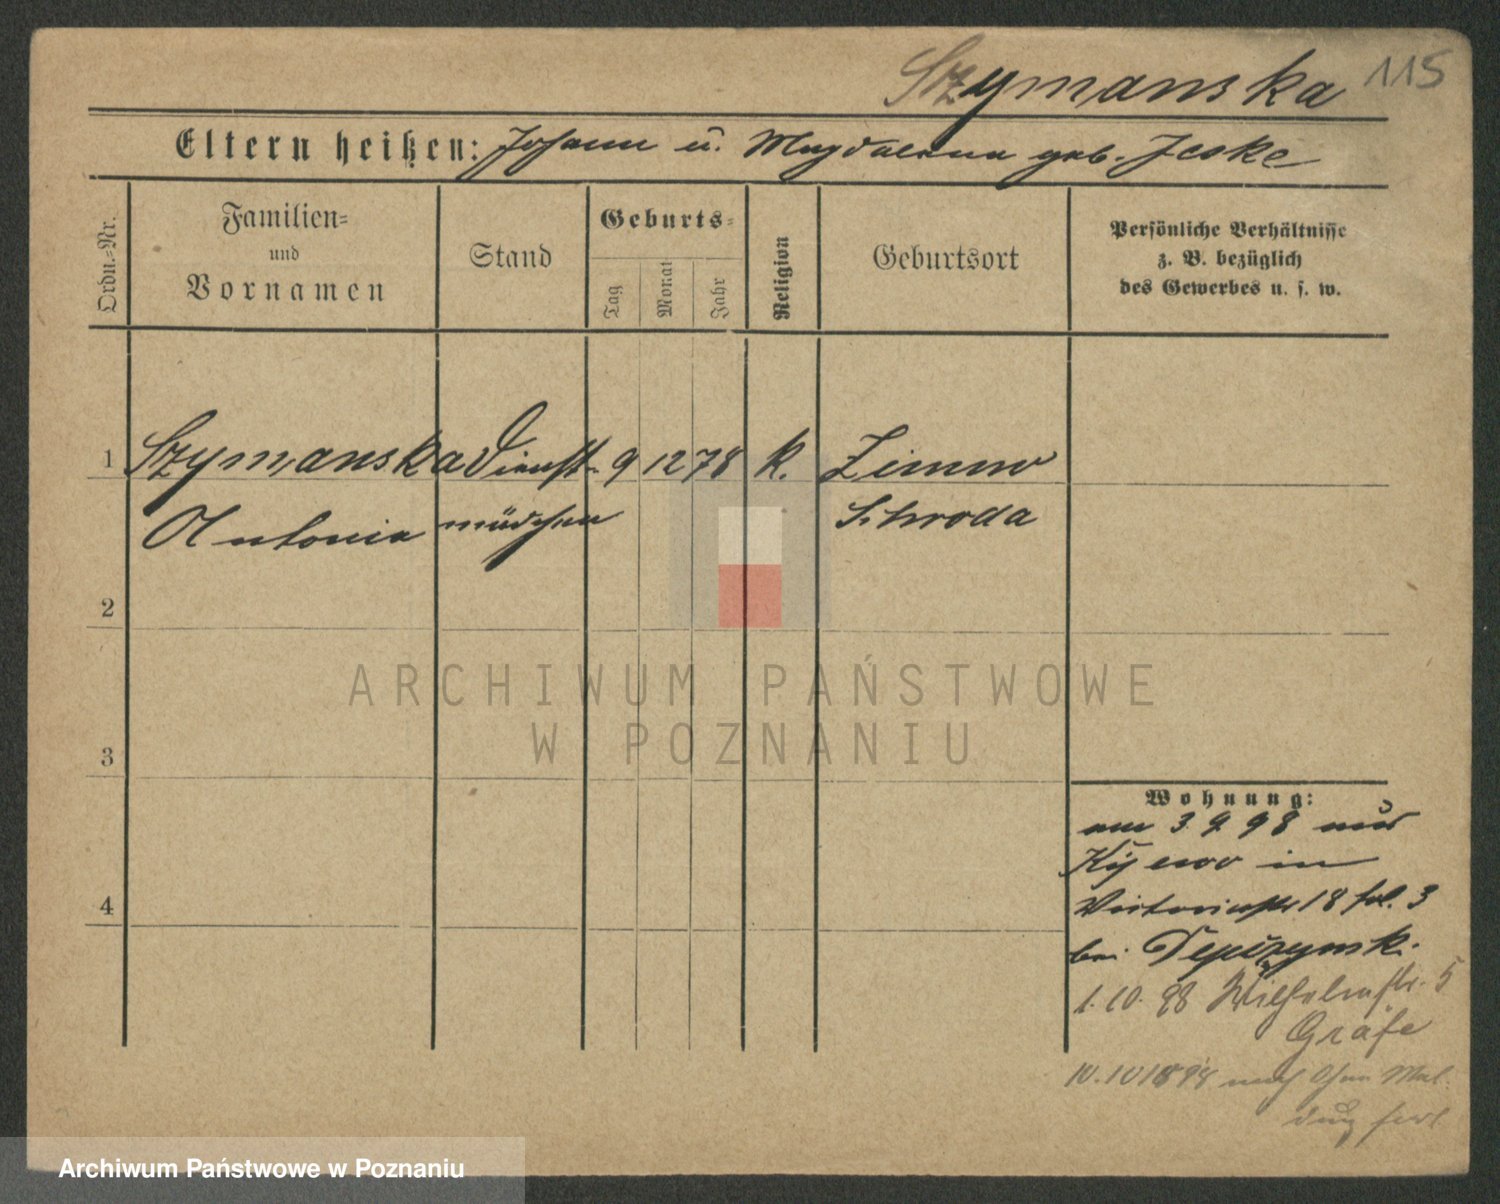 Szymanska 115
Eltern heißen: Johann u. Magdalena geb. Jeske
Ordn.-Nr.
Familien-
und
Vornamen
Stand
Geburts-
Tag
Monat
Jahr
Religion
Geburtsort
Persönliche Verhältnisse
z. B. bezüglich
des Gewerbes u. s. w.
1 Szymanska Dienst- 9 12 78 k. Zimno
Antonia mädchen Schroda
2
ARCHIWUM PAŃSTWOWE
W POZNANIU
3
Wohnung:
am 3. 9. 98 aus
Kijewo in
4
Victoriastr 18 bei
1. 10. 98 Wilhelmstr. 5
Gräfe
10.10 1898 nach
Archiwum Państwowe w Poznaniu